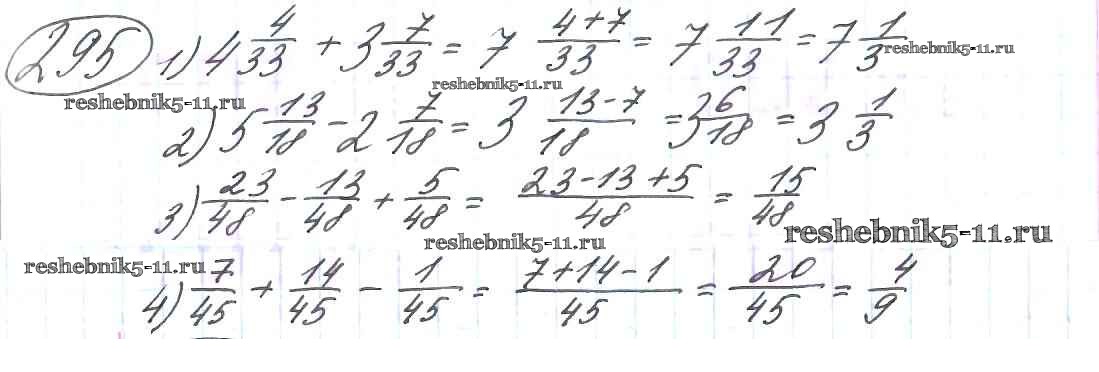 295 1) 4 4/33 + 3 7/33 = 7 (4+7)/33 = 7 11/33 = 7 1/3 reshebnik5-11.ru
reshebnik5-11.ru reshebnik5-11.ru
2) 5 13/18 - 2 7/18 = 3 (13-7)/18 = 3 6/18 = 3 1/3
3) 23/48 - 13/48 + 5/48 = (23-13+5)/48 = 15/48
reshebnik5-11.ru reshebnik5-11.ru
reshebnik5-11.ru
4) 7/45 + 14/45 - 1/45 = (7+14-1)/45 = 20/45 = 4/9